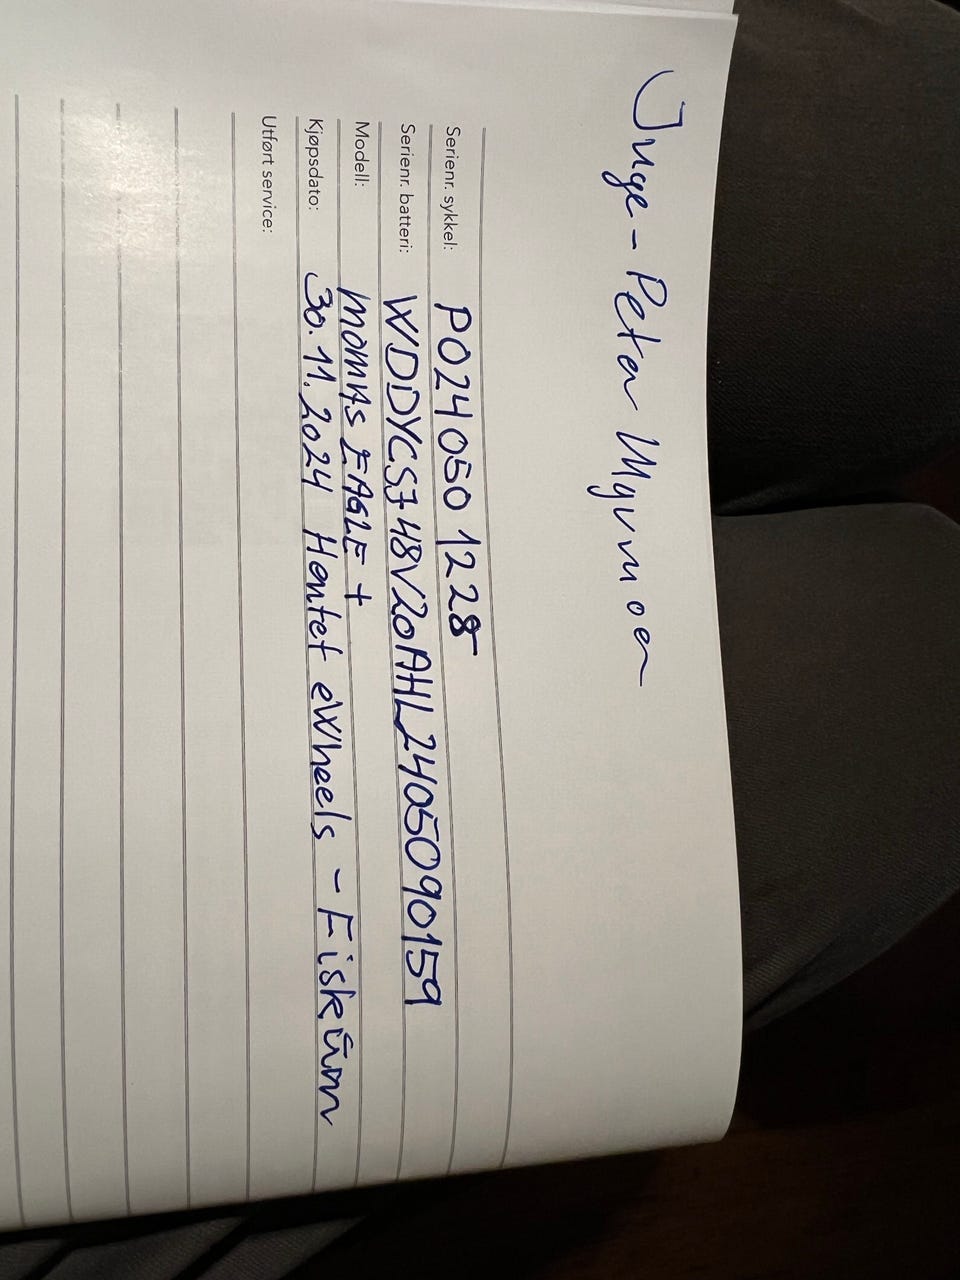 Inge-Peter Myrmoen
Serienr. sykkel: PO240501228
Serienr. batteri: WDDYCSJ48V20AHL2405090159
Modell: MOMAS EAGLE +
Kjøpsdato: 30.11.2024 Hentet eWheels - Fiskum
Utført service: